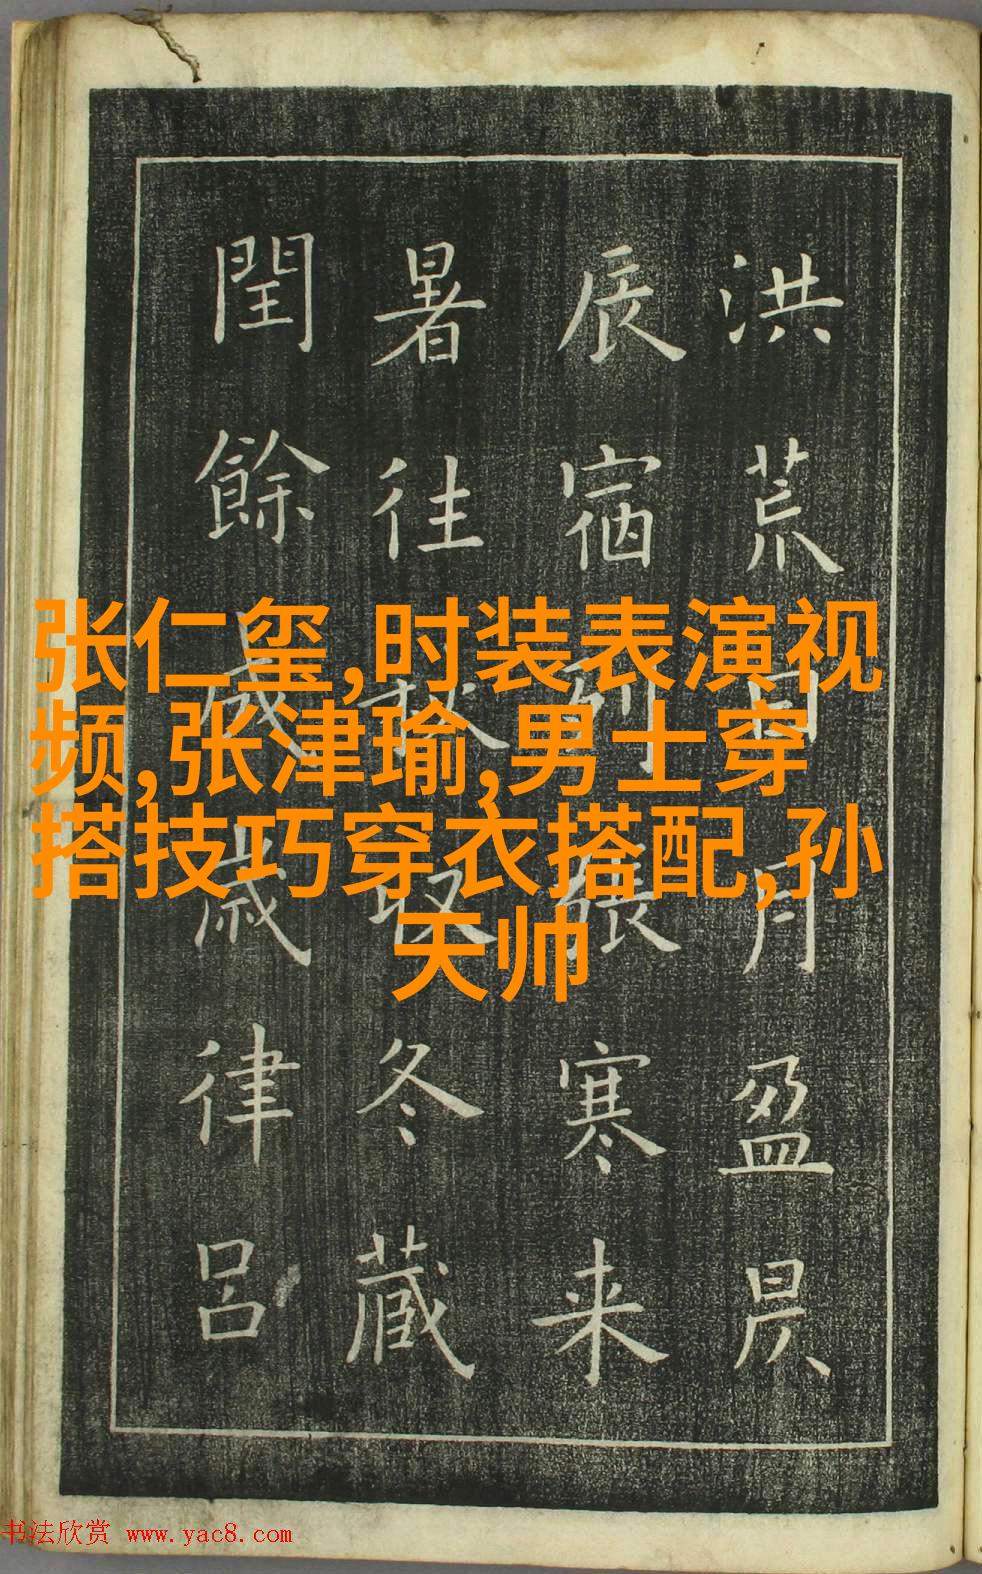 洪荒日月盈昃
辰宿列張寒来
暑往秋收冬藏
閏餘成歲律呂
张仁玺,时装表演视
频,张津瑜,男士穿
搭技巧穿衣搭配,孙
天帅
书法欣赏 www.yac8.com